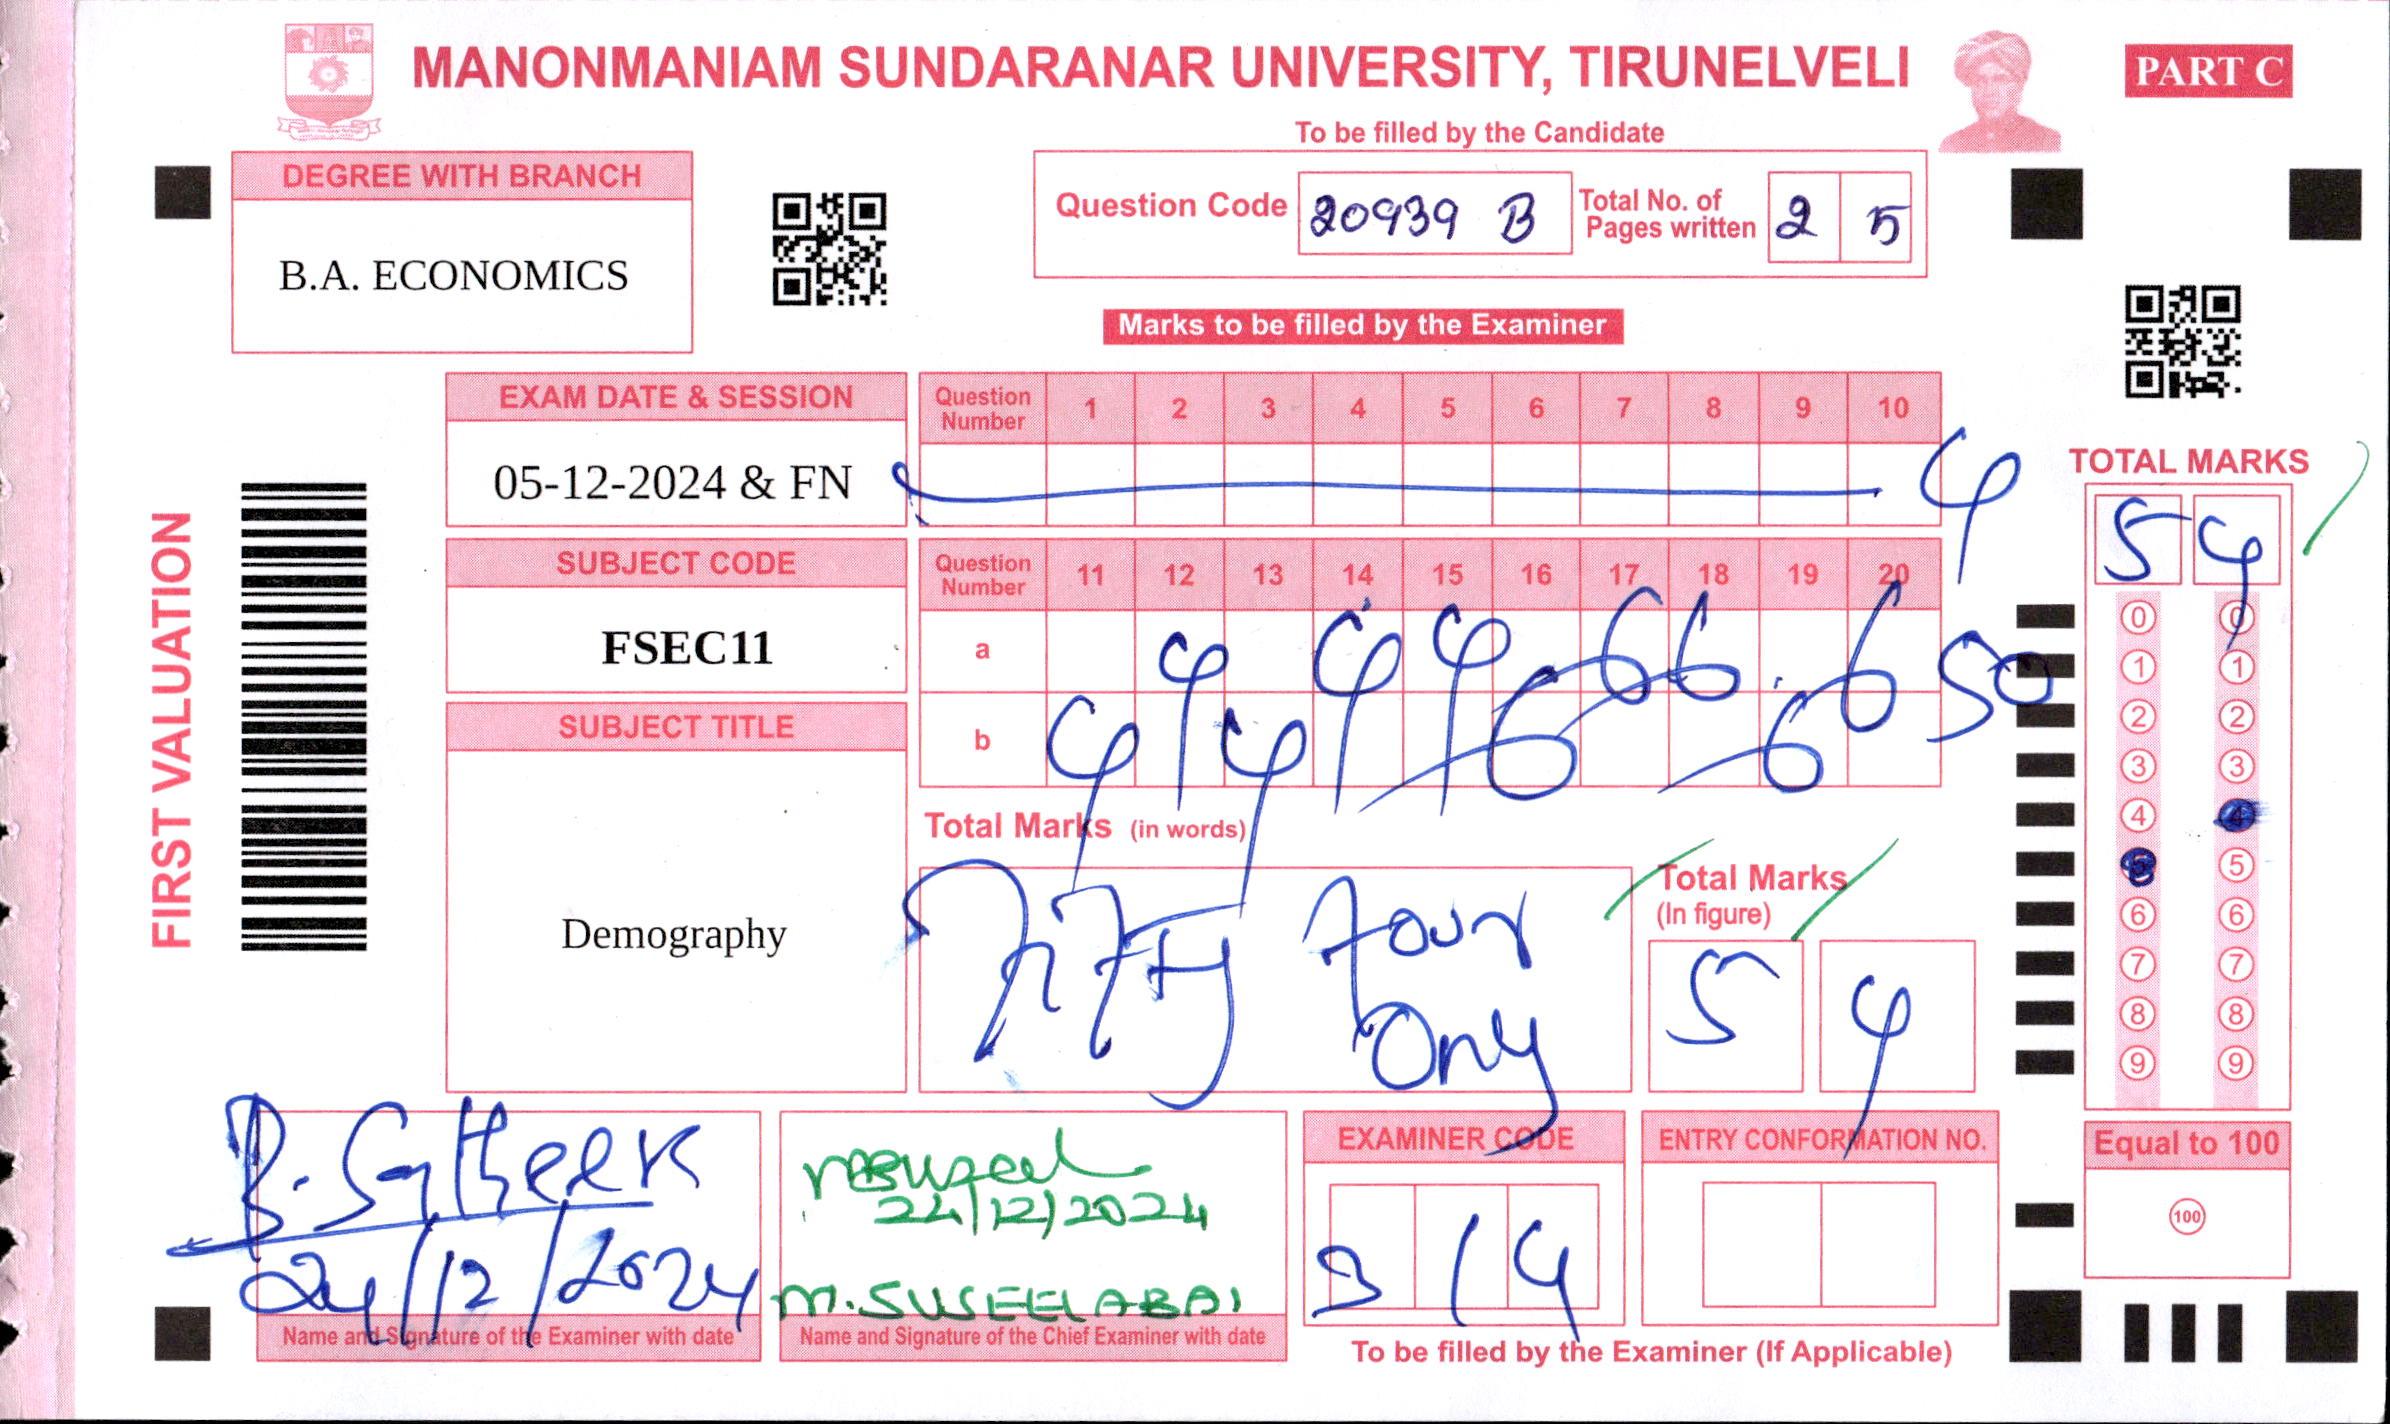 MANONMANIAM SUNDARANAR UNIVERSITY, TIRUNELVELI
PART C
To be filled by the Candidate
DEGREE WITH BRANCH
B.A. ECONOMICS
Question Code 20939 B Total No. of Pages written 2 5
Marks to be filled by the Examiner
EXAM DATE & SESSION
05-12-2024 & FN
Question Number 1 2 3 4 5 6 7 8 9 10
4
SUBJECT CODE
FSEC11
Question Number 11 12 13 14 15 16 17 18 19 20
a 4 4 4 6 6 6 50
b 4 4 6 6
SUBJECT TITLE
Demography
Total Marks (in words)
Fifty Four
Only
Total Marks
(In figure)
5 4
FIRST VALUATION
TOTAL MARKS
5 4
0 0
1 1
2 2
3 3
4 4
5 5
6 6
7 7
8 8
9 9
Equal to 100
100
24/12/2024
Name and Signature of the Examiner with date
24/12/2024
M. SUSEELABAI
Name and Signature of the Chief Examiner with date
EXAMINER CODE
3 1 4
ENTRY CONFORMATION NO.
To be filled by the Examiner (If Applicable)